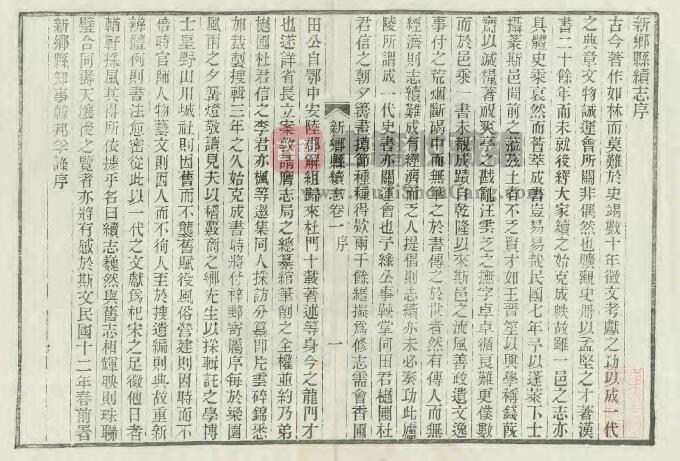 新鄉縣續志序
古今著作如林而莫難於史竭數十年徵文考獻之功以成一代
之典章文物誠運會所關非偶然也曠觀史冊以孟堅之才著漢
書二十餘年而未就後經大家續之始克成帙故雖一邑之志亦
具體史乘裒然而薈萃成書豈易易哉民國七年予以蓬萊下士
攝篆斯邑間前之蒞茲土者不乏賢才如王晉笙以興學稱錢
齋以減糧著祝爽亭之戡亂汪雲芝之撫字卓卓循良難更僕數
而於邑乘一書未覩成蹟自乾隆以來斯邑之流風善政遺文逸
事付之荒烟斷碣中而無筆之於書傳之於世者然有傳人而無
經濟則志續難成有經濟而乏人提倡則志續亦未必奏功此廬
陵所謂成一代史書亦關運會也予緣公事鞅掌向田君樾圃杜
君信之朝夕籌畫撙節種種得欵兩千餘緡擬為修志需會香圃
新鄉縣續志卷一 序 一
田公自鄂中安陸郡解組歸來杜門十載著述等身今之龍門才
也遂詳省長立案敦請膺志局之總纂綰筆削之全權並約乃弟
樾圃杜君信之李君亦楓等遴選同人採訪分纂即片雲碎錦悉
加裁製搜輯三年之久始克成書時將付梓郵寄屬序每於梁園
風雨之夕篝燈敬讀見夫以稽覈商之鄉先生以採輯託之學博
士星野山川城社則因舊而不襲舊賦役風俗營建則因時而不
倍時官師人物藝文則因人而不徇人至於搜遺編則典故重新
辨體例則書法愈密從此以一代之文獻為杞宋之足徵他日者
輶軒採風其得所依據乎名曰續志巍然與舊志相輝映則珠聯
璧合同壽天壤後之覽者亦將有感於斯文民國十二年春前署
新鄉縣知事韓邦孚謹序